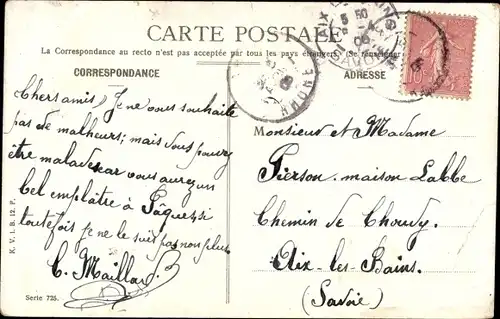 CARTE POSTALE
La Correspondance au recto n'est pas acceptée par tous les pays étrangers. (Se renseigner
CORRESPONDANCE
ADRESSE
Chers amis, Je ne vous souhaite
pas de malheurs; mais vous pouvez
être malade car vous aurez un
bel emplâtre à Pâques si
toutefois je ne le suis pas non plus.
C. Maillard
Monsieur et Madame
Pierson. maison Labbe
Chemin de Choudy.
Aix-les-Bains.
(Savoie)
K. V. i. B. 12. P.
Serie 725.
10